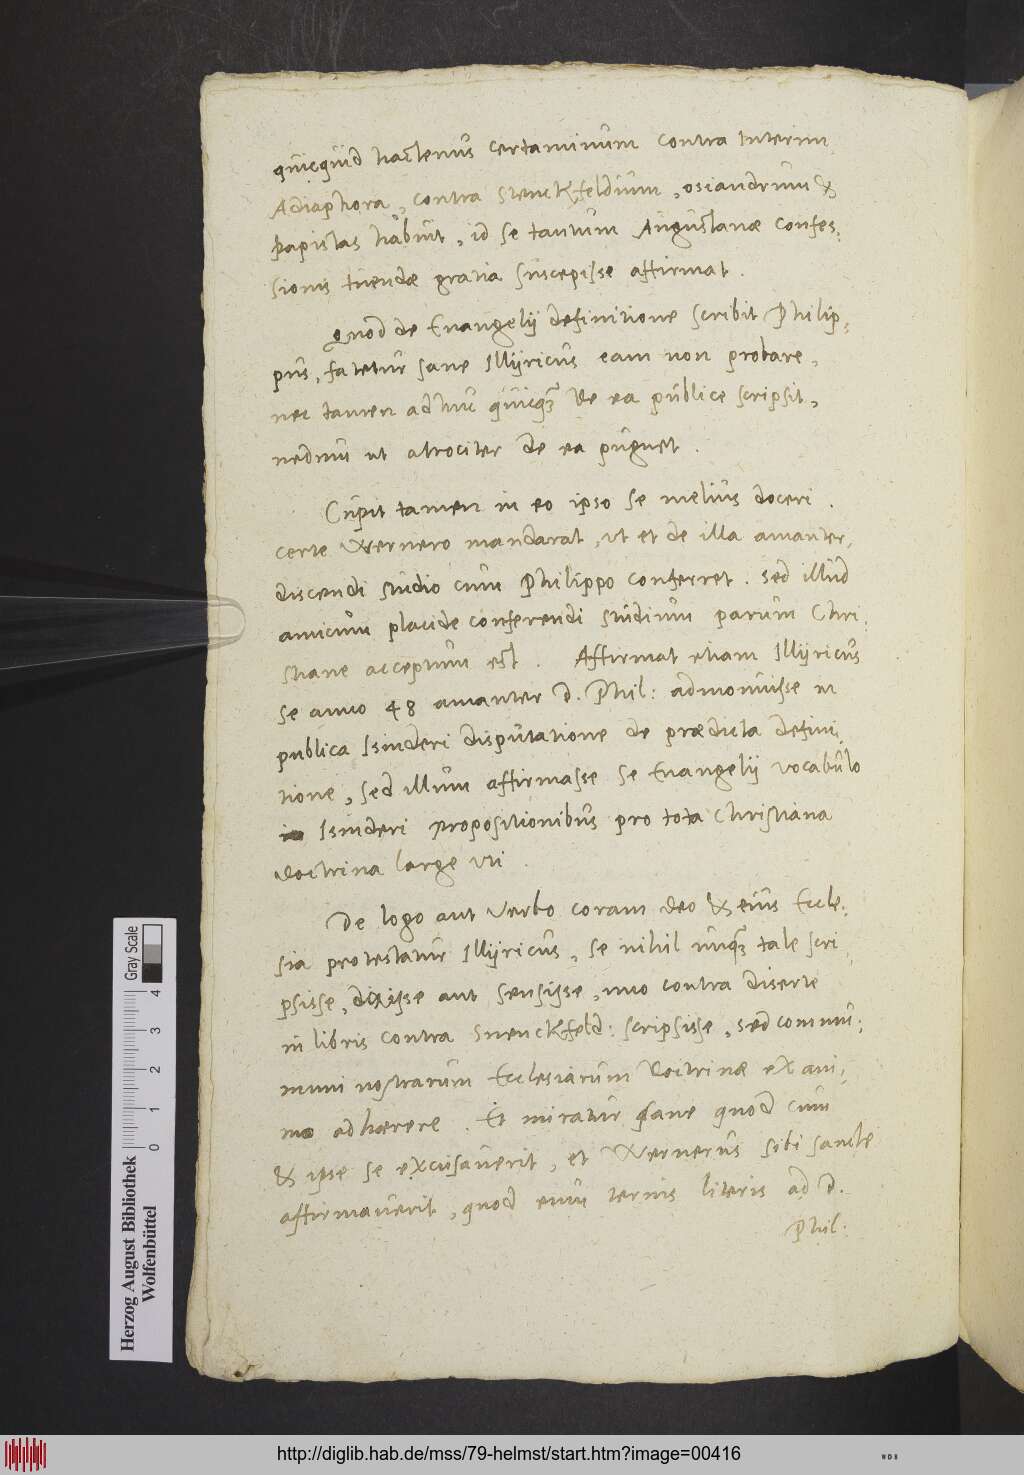 quicquid hactenus certaminum contra Interim,
Adiaphora, contra Stenckfeldium, osiandrum &
papistas habuit, id se tantum Augustanae confes-
sionis tuendae gratia suscepisse affirmat.
Quod de Evangelij definitione scribit Philip-
pus, fatetur sane Illyricus eam non probare,
nec tamen adhuc quicq de ea publice scripsit,
nedum ut atrociter de ea pugnet.
Cupit tamen in eo ipso se melius doceri.
certe Wernero mandarat, ut et de illa amanter,
discendi studio cum Philippo conferret. sed illud
amicum placide conferendi studium parum Chri-
stiane acceptum est. Affirmat etiam Illyricus
se anno 48 amanter D. Phil: admonuisse in
publica Isinderi disputatione de praedicta defini-
tione, sed illum affirmasse se Evangelij vocabulo
Isinderi propositionibus pro tota Christiana
doctrina large uti.
De logo aut Verbo coram deo & eius Eccle-
sia protestatur Illyricus, se nihil unq tale scri-
psisse, dixisse aut sensisse, imo contra diserte
in libris contra Suenckfeld: scripsisse, sed commu-
muni nostrarum Ecclesiarum doctrinae ex ani-
mo adhaerere. Et miratur sane quod cum
& ipse se excusaverit, et Wernerus sibi sancte
affirmaverit, quod eum ternis literis ad D.
Phil:
Gray Scale
0 1 2 3 4
Herzog August Bibliothek
Wolfenbüttel
http://diglib.hab.de/mss/79-helmst/start.htm?image=00416